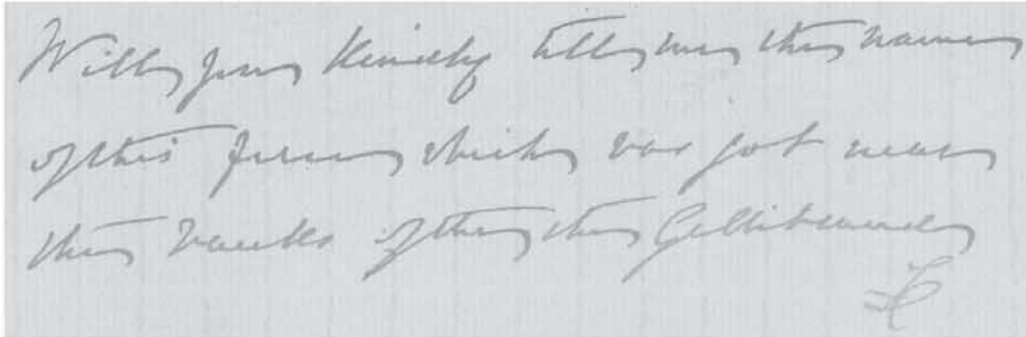 Will you kindly tell me the name
of this fern which was got near
the banks of the the Gellibrand